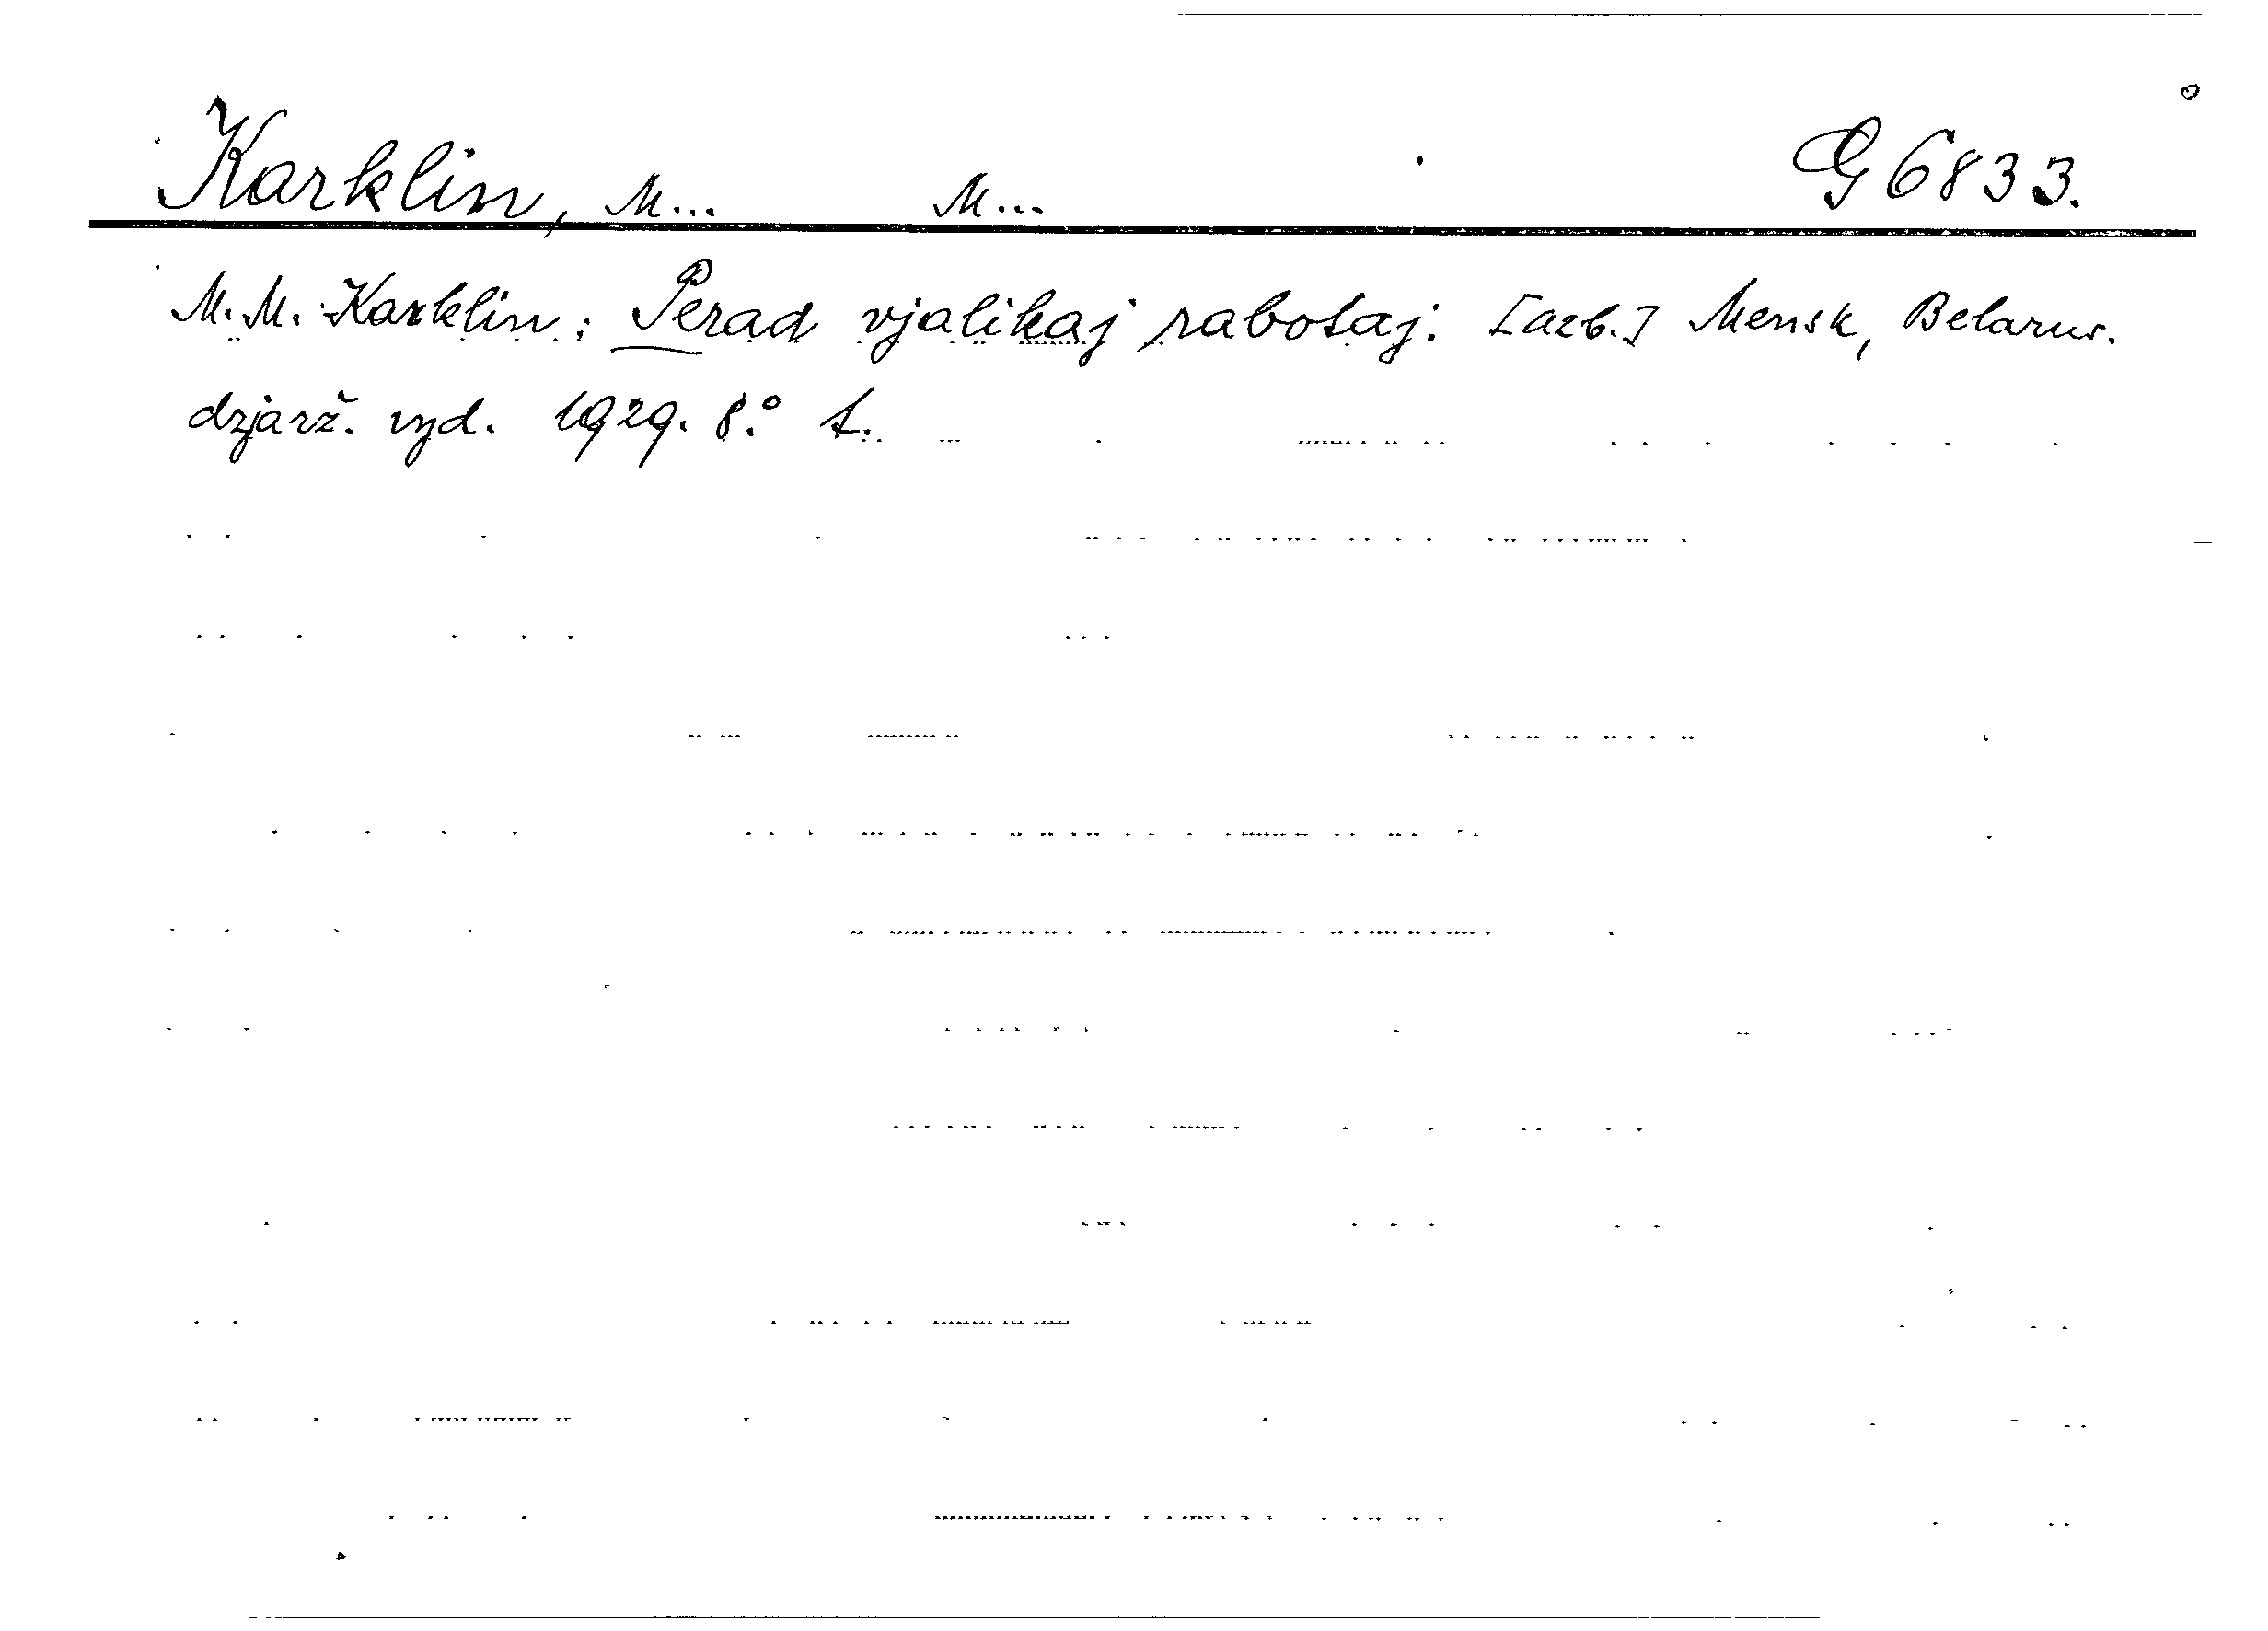 Karklin, M... M... G 6833.
M. M. Karklin: Perad vjalikaj rabotaj. [azb.] Mensk, Belarus.
dzjarž. vyd. 1929. 8.° t.